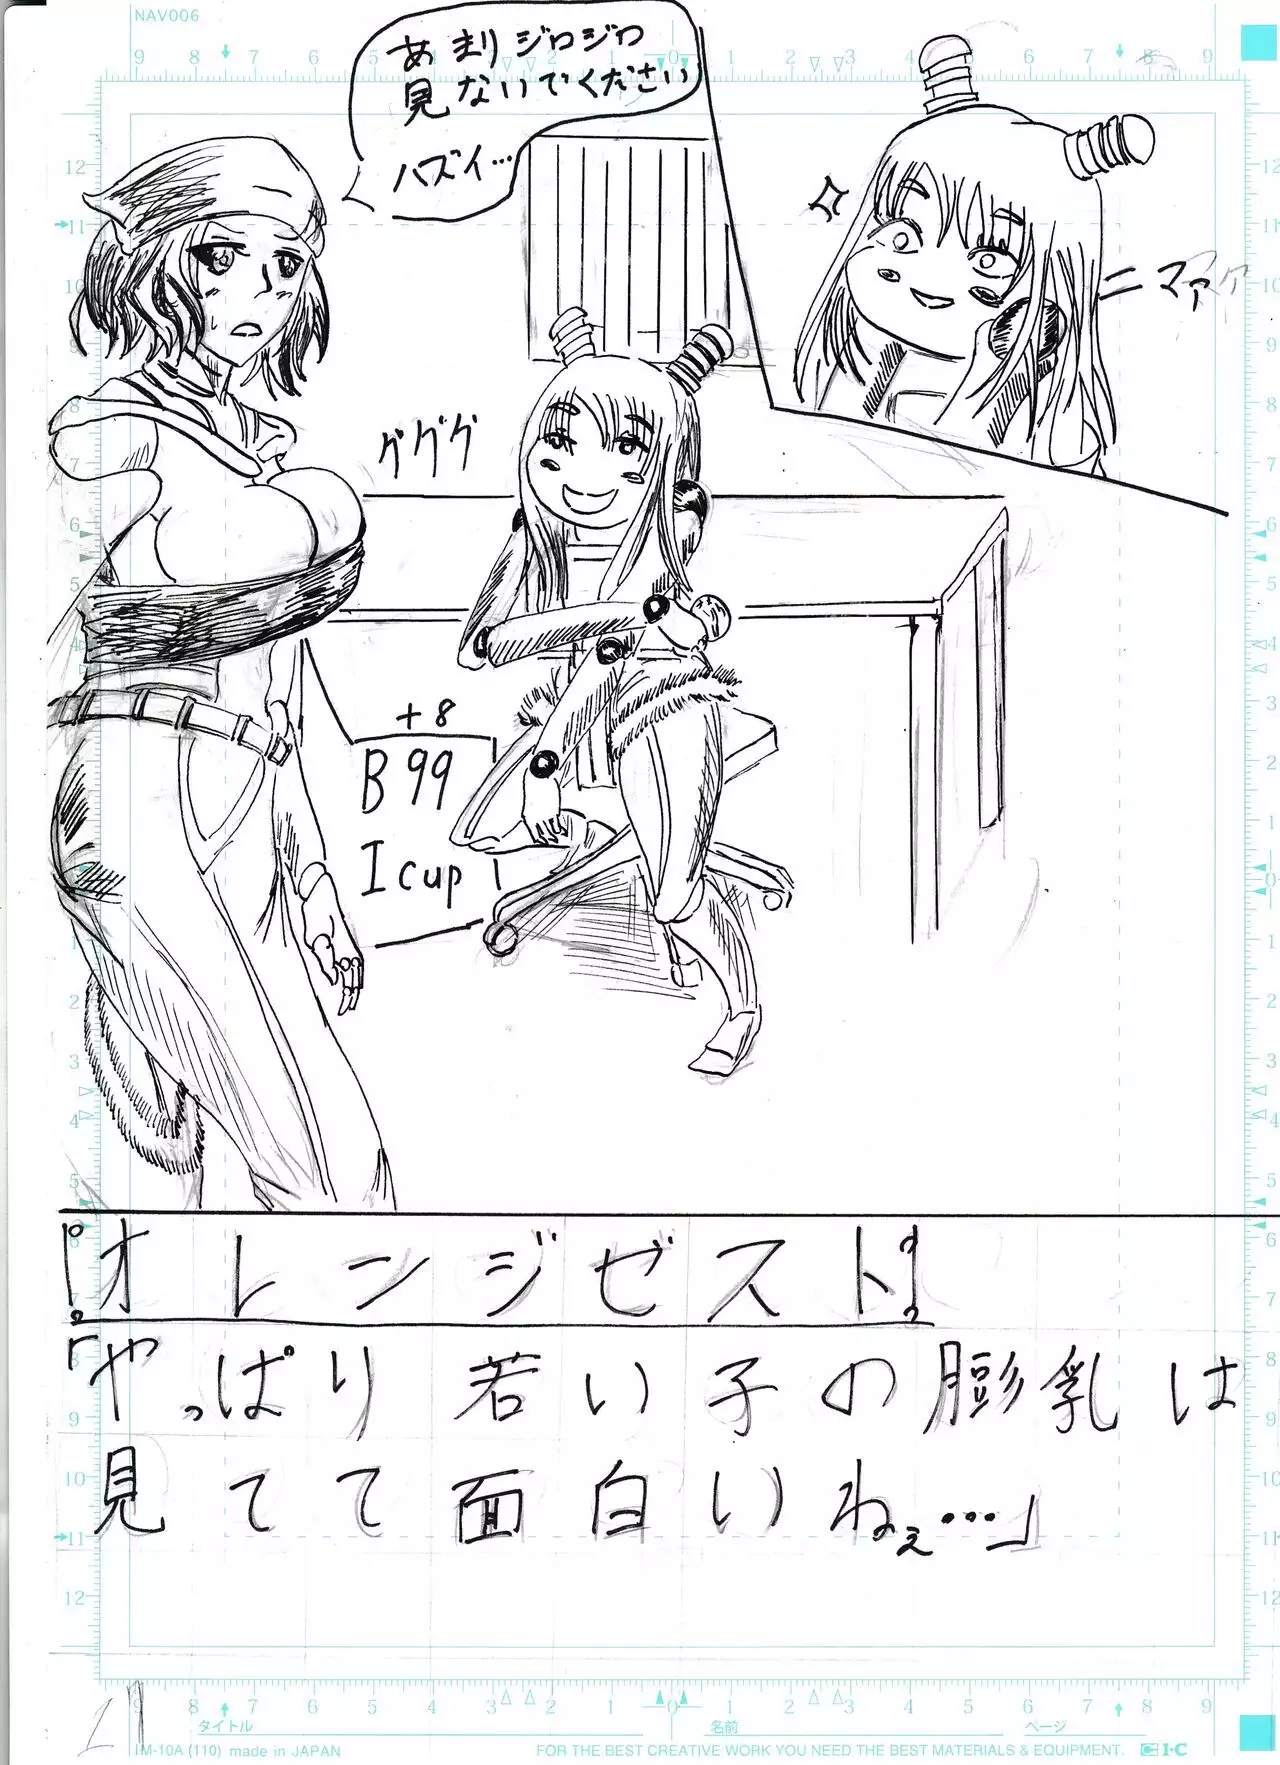 NAV006
あまりジロジロ
見ないでください
ハズイ…
ニマァァ
グググ
+8
B 99
I cup
『オレンジゼスト』
「やっぱり若い子の膨乳は
見てて面白いねぇ…」
タイトル
名前
ページ
IM-10A (110) made in JAPAN
FOR THE BEST CREATIVE WORK YOU NEED THE BEST MATERIALS & EQUIPMENT.
I·C